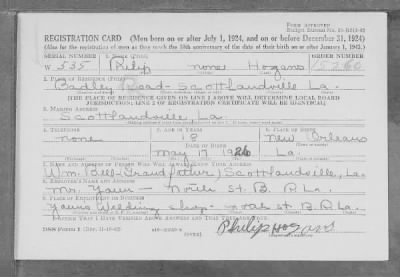 FORM APPROVED
REGISTRATION CARD (Men born on or after July 1, 1924, and on or before December 31, 1924)
(Also for the registration of men as they reach the 18th anniversary of the date of their birth on or after January 1, 1943.)
SERIAL NUMBER 1. NAME (Print) ORDER NUMBER
W 535 Philip none Hogans
2. PLACE OF RESIDENCE (Print)
Road Scotlandville La.
[THE PLACE OF RESIDENCE GIVEN ON LINE 2 ABOVE WILL DETERMINE LOCAL BOARD
JURISDICTION; LINE 2 OF REGISTRATION CERTIFICATE WILL BE IDENTICAL]
3. MAILING ADDRESS
Scotlandville La.
4. TELEPHONE 5. AGE IN YEARS 6. PLACE OF BIRTH
none 18 New Orleans
DATE OF BIRTH
May 17 1926 La.
7. NAME AND ADDRESS OF PERSON WHO WILL ALWAYS KNOW YOUR ADDRESS
Wm. Bell (Grand father) Scotlandville, La.
8. EMPLOYER'S NAME AND ADDRESS
Mr. North St. B.R. La.
9. PLACE OF EMPLOYMENT OR BUSINESS
Welding Shop North St. B.R. La.
I AFFIRM THAT I HAVE VERIFIED ABOVE ANSWERS AND THAT THEY ARE TRUE.
DSS Form 1
Philip Hogans